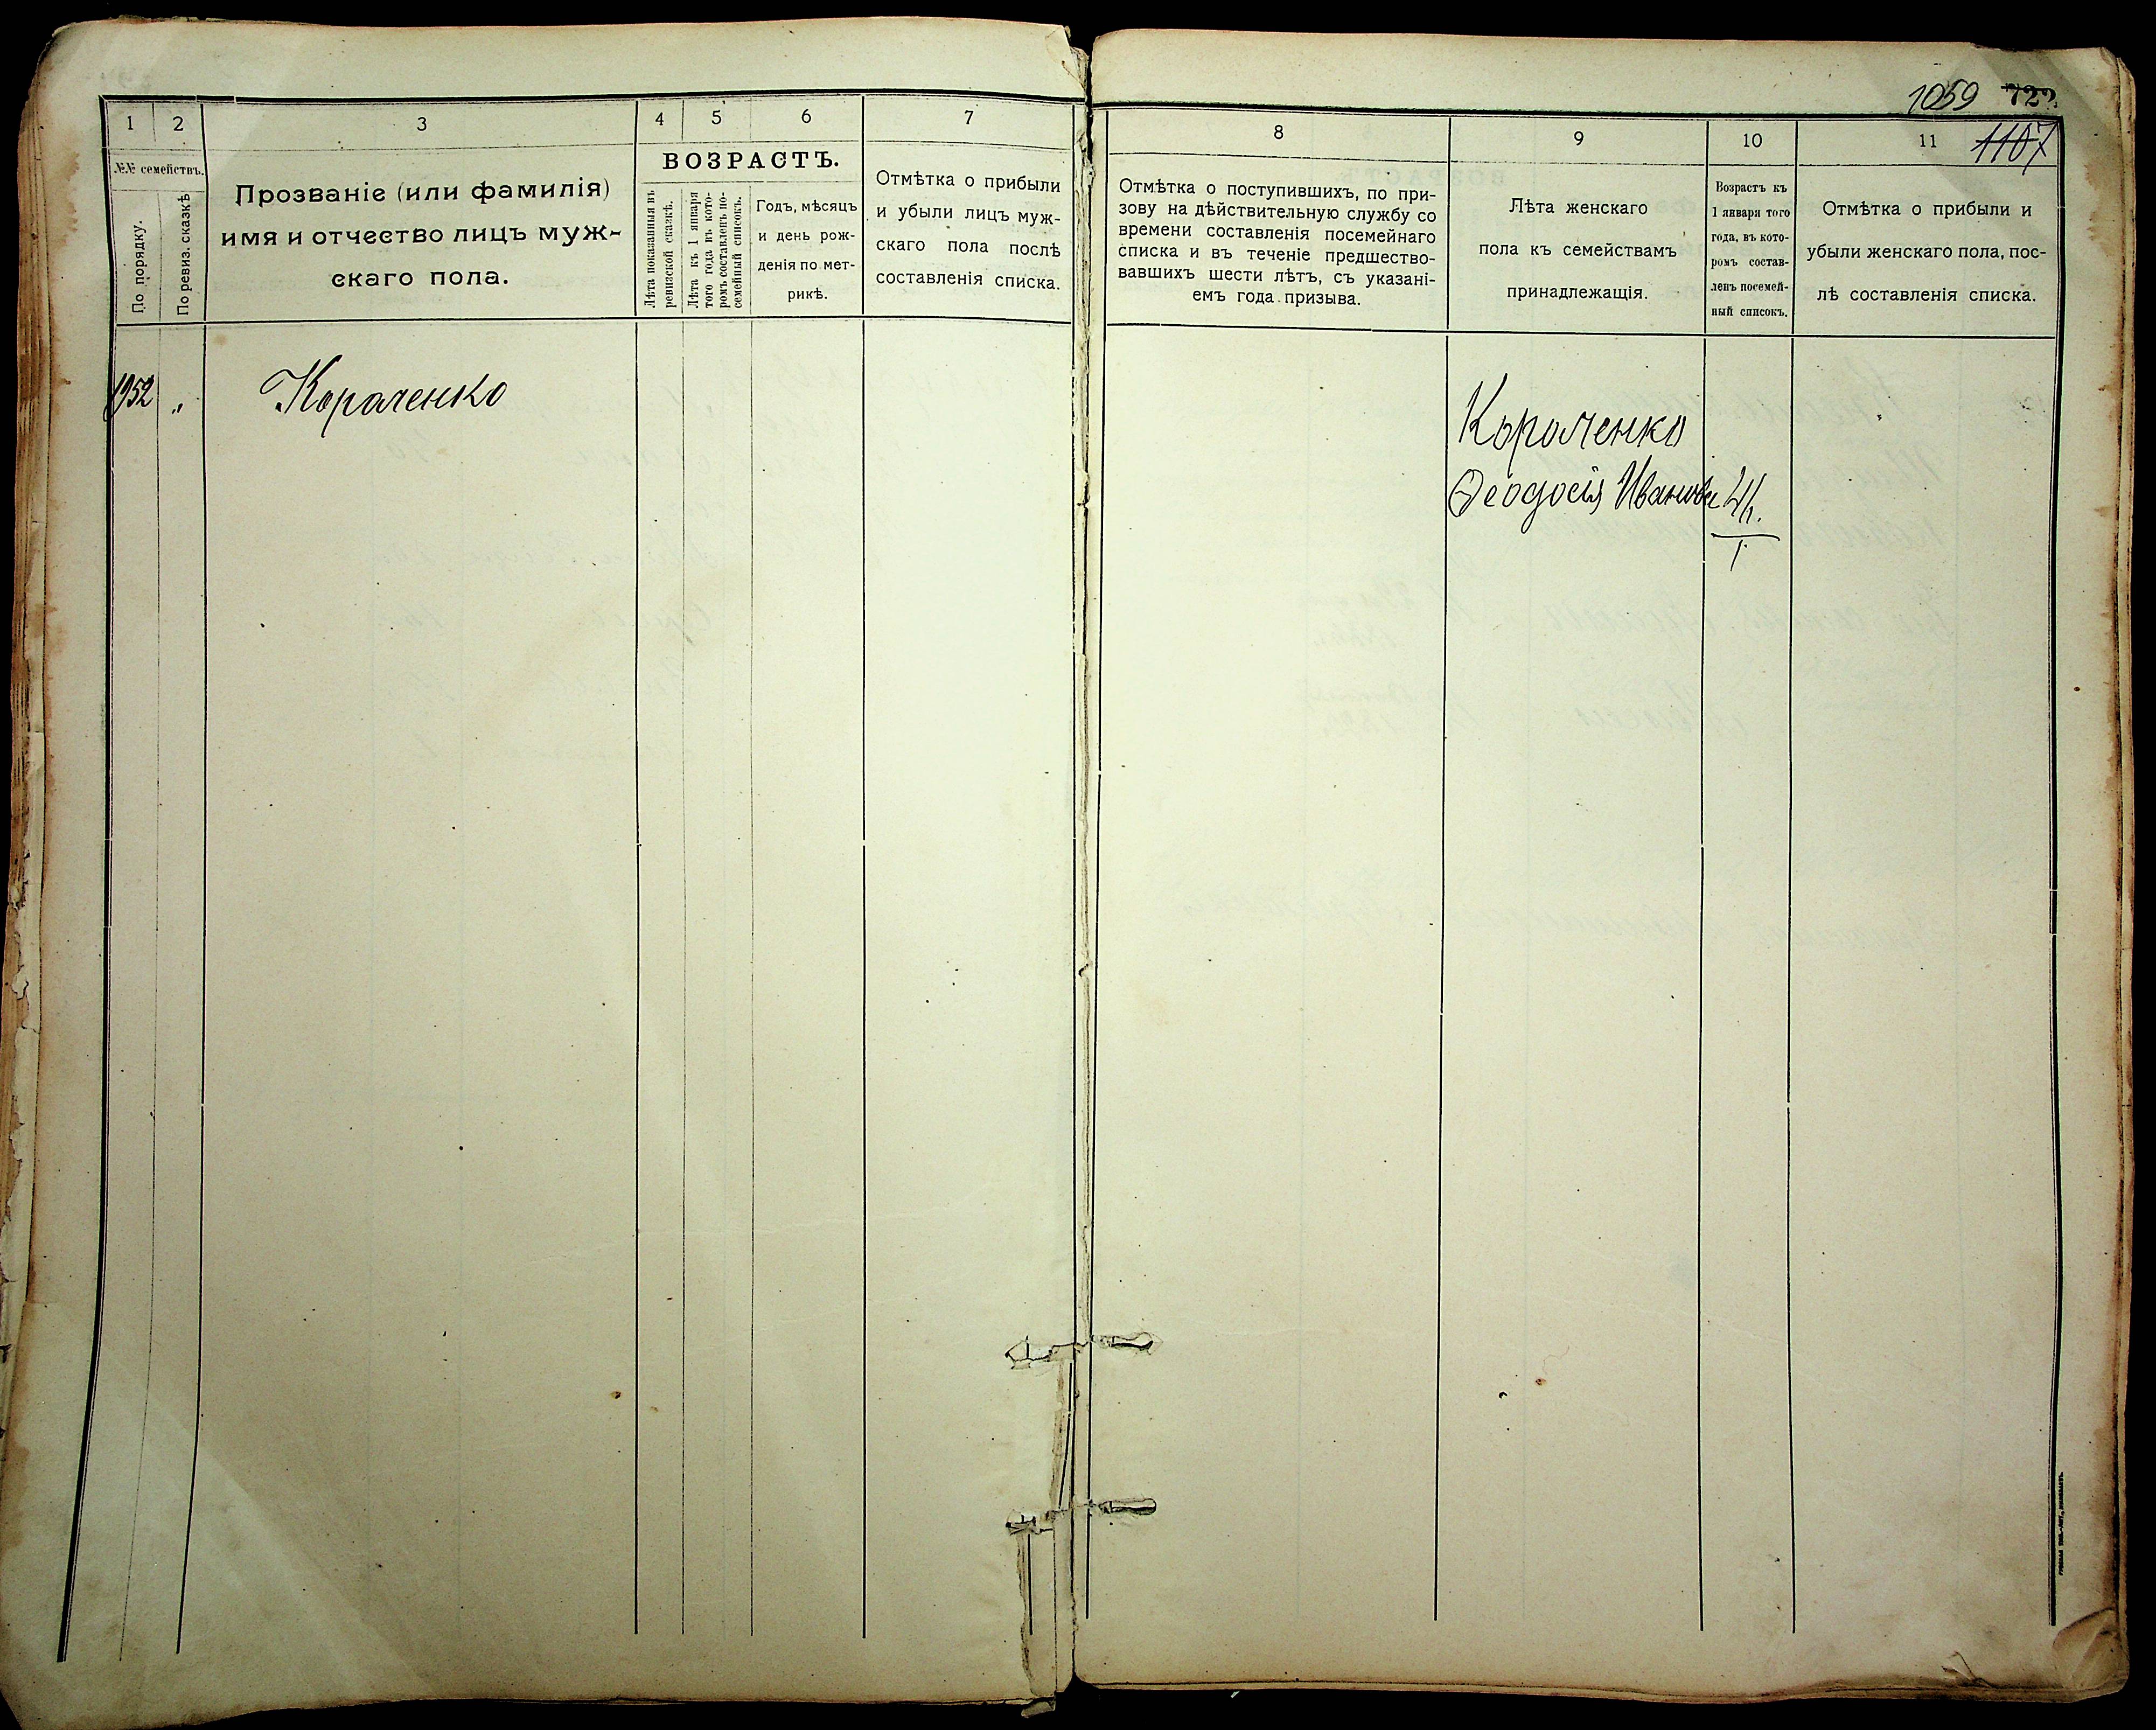 1059 722
1107
1
2
3
4
5
6
7
№№ семействъ.
По порядку.
По ревиз. сказкѣ
Прозваніе (или фамилія)
имя и отчество лицъ муж-
скаго пола.
ВОЗРАСТЪ.
Лѣта показанныя въ
ревизской сказкѣ.
Лѣта къ 1 января
того года въ кото-
ромъ составленъ по-
семейный списокъ.
Годъ, мѣсяцъ
и день рож-
денія по мет-
рикѣ.
Отмѣтка о прибыли
и убыли лицъ муж-
скаго пола послѣ
составленія списка.
1952 „ Короченко
8
9
10
11
Отмѣтка о поступившихъ, по при-
зову на дѣйствительную службу со
времени составленія посемейнаго
списка и въ теченіе предшество-
вавшихъ шести лѣтъ, съ указані-
емъ года призыва.
Лѣта женскаго
пола къ семействамъ
принадлежащія.
Возрастъ къ
1 января того
года, въ кото-
ромъ состав-
ленъ посемей-
ный списокъ.
Отмѣтка о прибыли и
убыли женскаго пола, пос-
лѣ составленія списка.
Короченко
Ѳеодосія Иванова